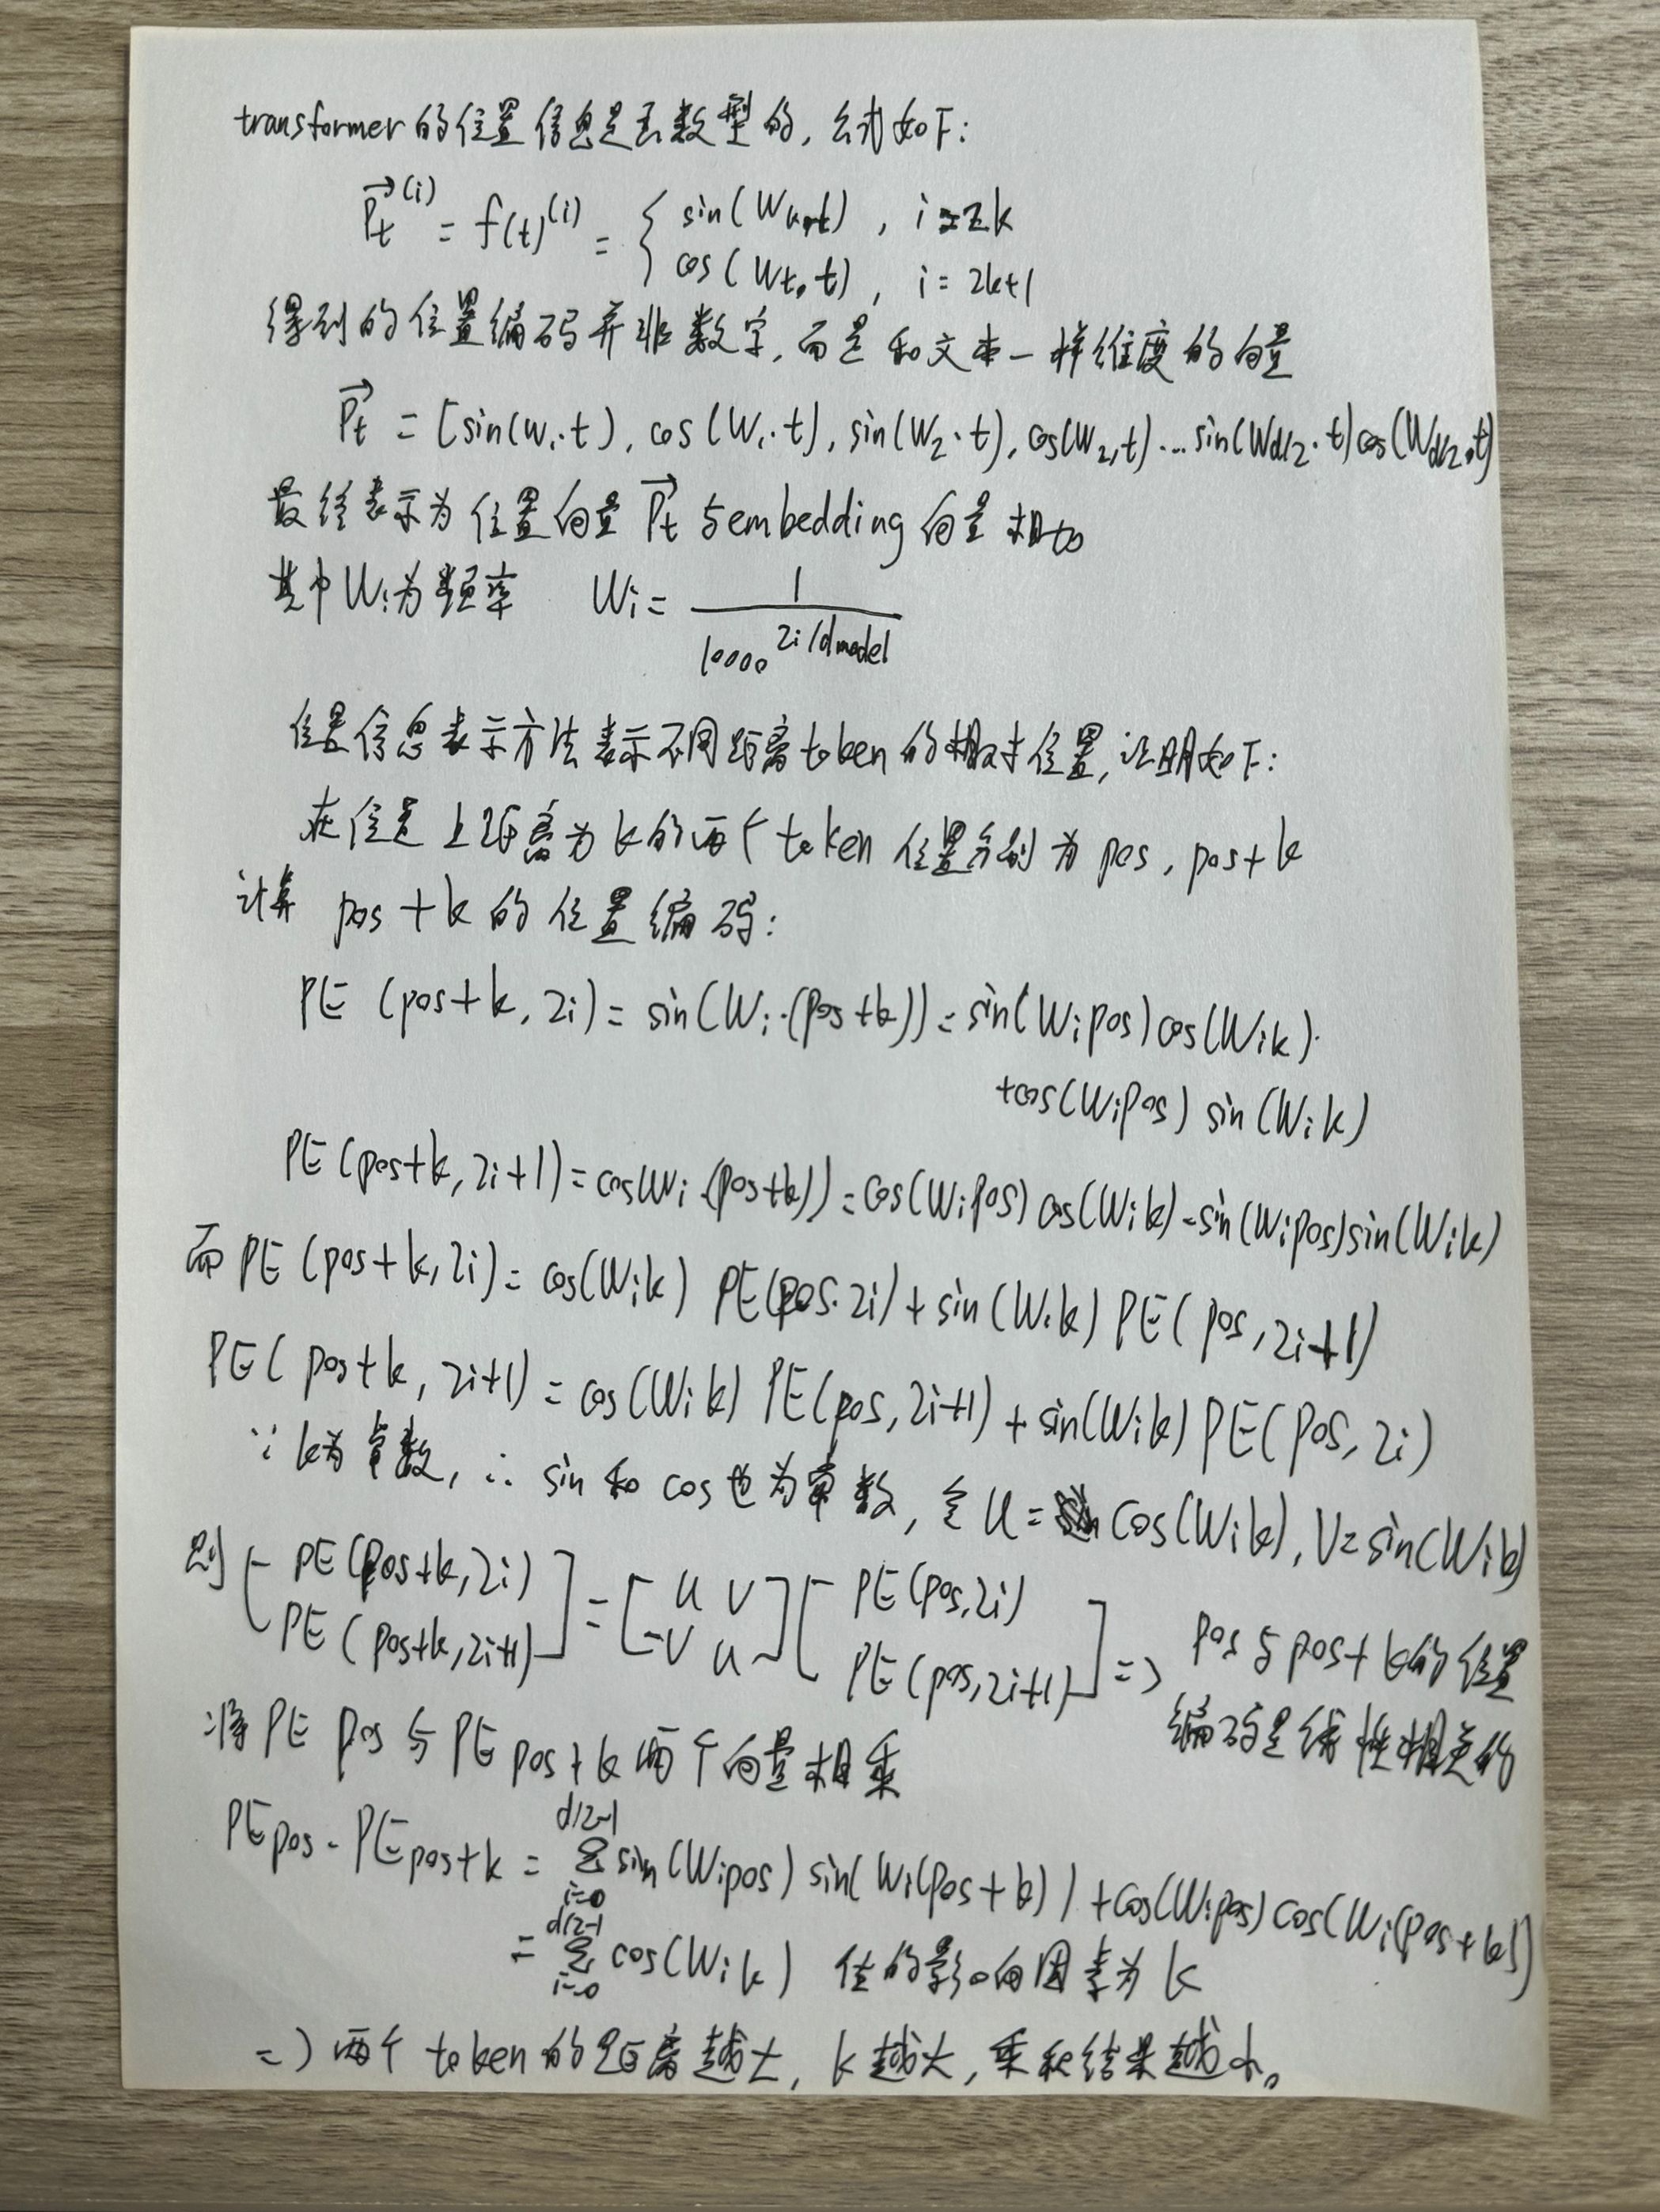 transformer的位置信息是函数型的, 公式如下:
P⃗t^(i) = f(t)^(i) = { sin(Wk,t) , i=2k
cos(Wt,t) , i=2k+1
得到的位置编码并非数字,而是和文本一样维度的向量
P⃗t = [sin(W₁·t), cos(W₁·t), sin(W₂·t), cos(W₂,t)...sin(Wd/2·t)cos(Wd/2,t)
最终表示为位置向量 P⃗t 与embedding向量相加
其中Wi为频率 Wi = 1 / 10000^(2i/dmodel)
位置信息表示方法表示不同距离token的相对位置,证明如下:
在位置上距离为k的两个token位置分别为pos, pos+k
计算 pos+k的位置编码:
PE (pos+k, 2i) = sin(Wi·(pos+k)) = sin(Wipos)cos(Wik)·
+cos(Wipos) sin(Wik)
PE(pos+k, 2i+1) = cos(Wi·(pos+k)) = cos(Wipos)cos(Wik)-sin(Wipos)sin(Wik)
而PE (pos+k, 2i) = cos(Wik) PE(pos.2i) + sin(Wik) PE(pos, 2i+1)
PE(pos+k, 2i+1) = cos(Wik) PE(pos, 2i+1) + sin(Wik) PE(pos, 2i)
∵k为常数, ∴ sin和cos也为常数, 令U=cos(Wik), V=sin(Wik)
则[PE(pos+k,2i) PE(pos+k,2i+1)] = [U V -V U][PE(pos,2i) PE(pos,2i+1)] => pos与pos+k的位置
编码是线性相关的
将PE pos与PE pos+k两个向量相乘
PEpos·PEpos+k = Σ(i=0, d/2-1) sin(Wipos) sin(Wi(pos+k)) + cos(Wipos)cos(Wi(pos+k))
= Σ(i=0, d/2-1) cos(Wik) 值的影响因素为k
=> 两个token的距离越大, k越大, 乘积结果越小。